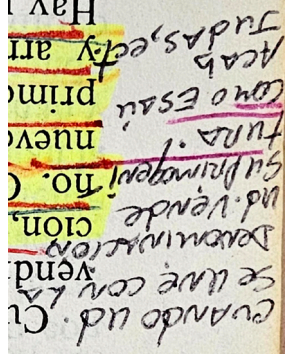 CUANDO UD.
SE UNE CON LA
DENOMINACION
UD. VENDE
SU PRIMOGENI
TURA.
COMO ESAÚ
ACAB
JUDAS, ect
Cu
vendi
ción,
ho. C
nuevo
primo
y arr
Hay